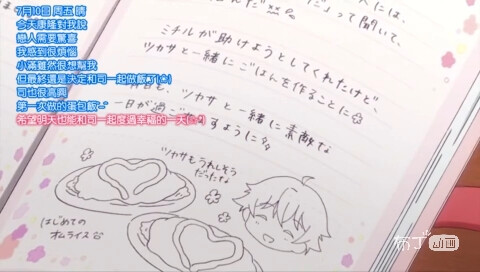 7月10日 周五 晴
今天康隆對我說
戀人需要驚喜
我感到很煩惱
小滿雖然很想幫我
但最終還是決定和司一起做飯了(☆)
司也很高興
第一次做的蛋包飯
希望明天也能和司一起度過幸福的一天
だよって聞いて、
ミチルが助けようとしてくれたけど、
ツカサと一緒にごはんを作ることに☆
明日も、ツカサと一緒に素敵な
一日が過ごせますように☆
ツカサもうれしそう
だったな
はじめての
オムライス
布丁动画